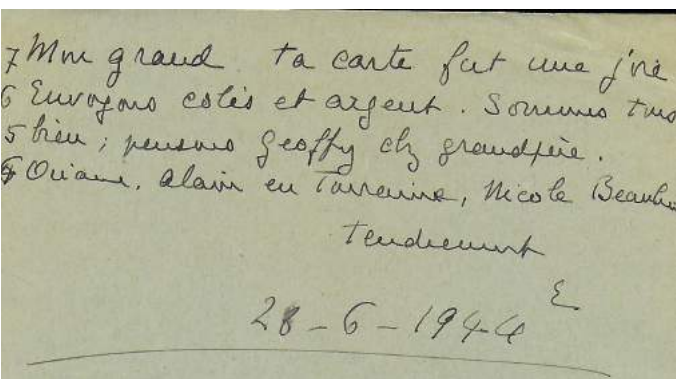 7 Mon grand ta carte fut une joie
6 Envoyons colis et argent. Sommes tous
5 bien ; pensons Geoffry chz grandpère.
Oriane, Alain en Tourraine, Nicole
Tendrement
E
28-6-1944